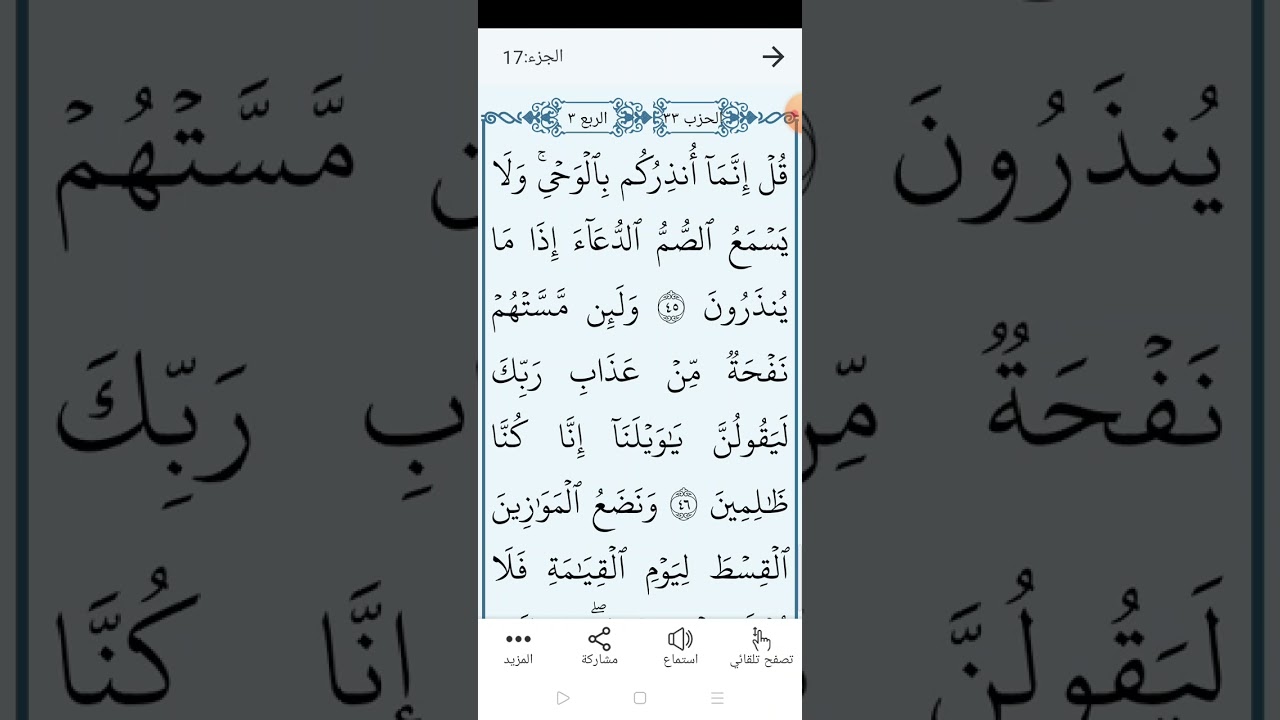 الجزء:17
الحزب ٣٣ الربع ٣
قُلۡ إِنَّمَآ أُنذِرُكُم بِٱلۡوَحۡيِۚ وَلَا
يَسۡمَعُ ٱلصُّمُّ ٱلدُّعَآءَ إِذَا مَا
يُنذَرُونَ ٤٥ وَلَئِن مَّسَّتۡهُمۡ
نَفۡحَةٞ مِّنۡ عَذَابِ رَبِّكَ
لَيَقُولُنَّ يَٰوَيۡلَنَآ إِنَّا كُنَّا
ظَٰلِمِينَ ٤٦ وَنَضَعُ ٱلۡمَوَٰزِينَ
ٱلۡقِسۡطَ لِيَوۡمِ ٱلۡقِيَٰمَةِ فَلَا
تصفح تلقائي استماع مشاركة المزيد